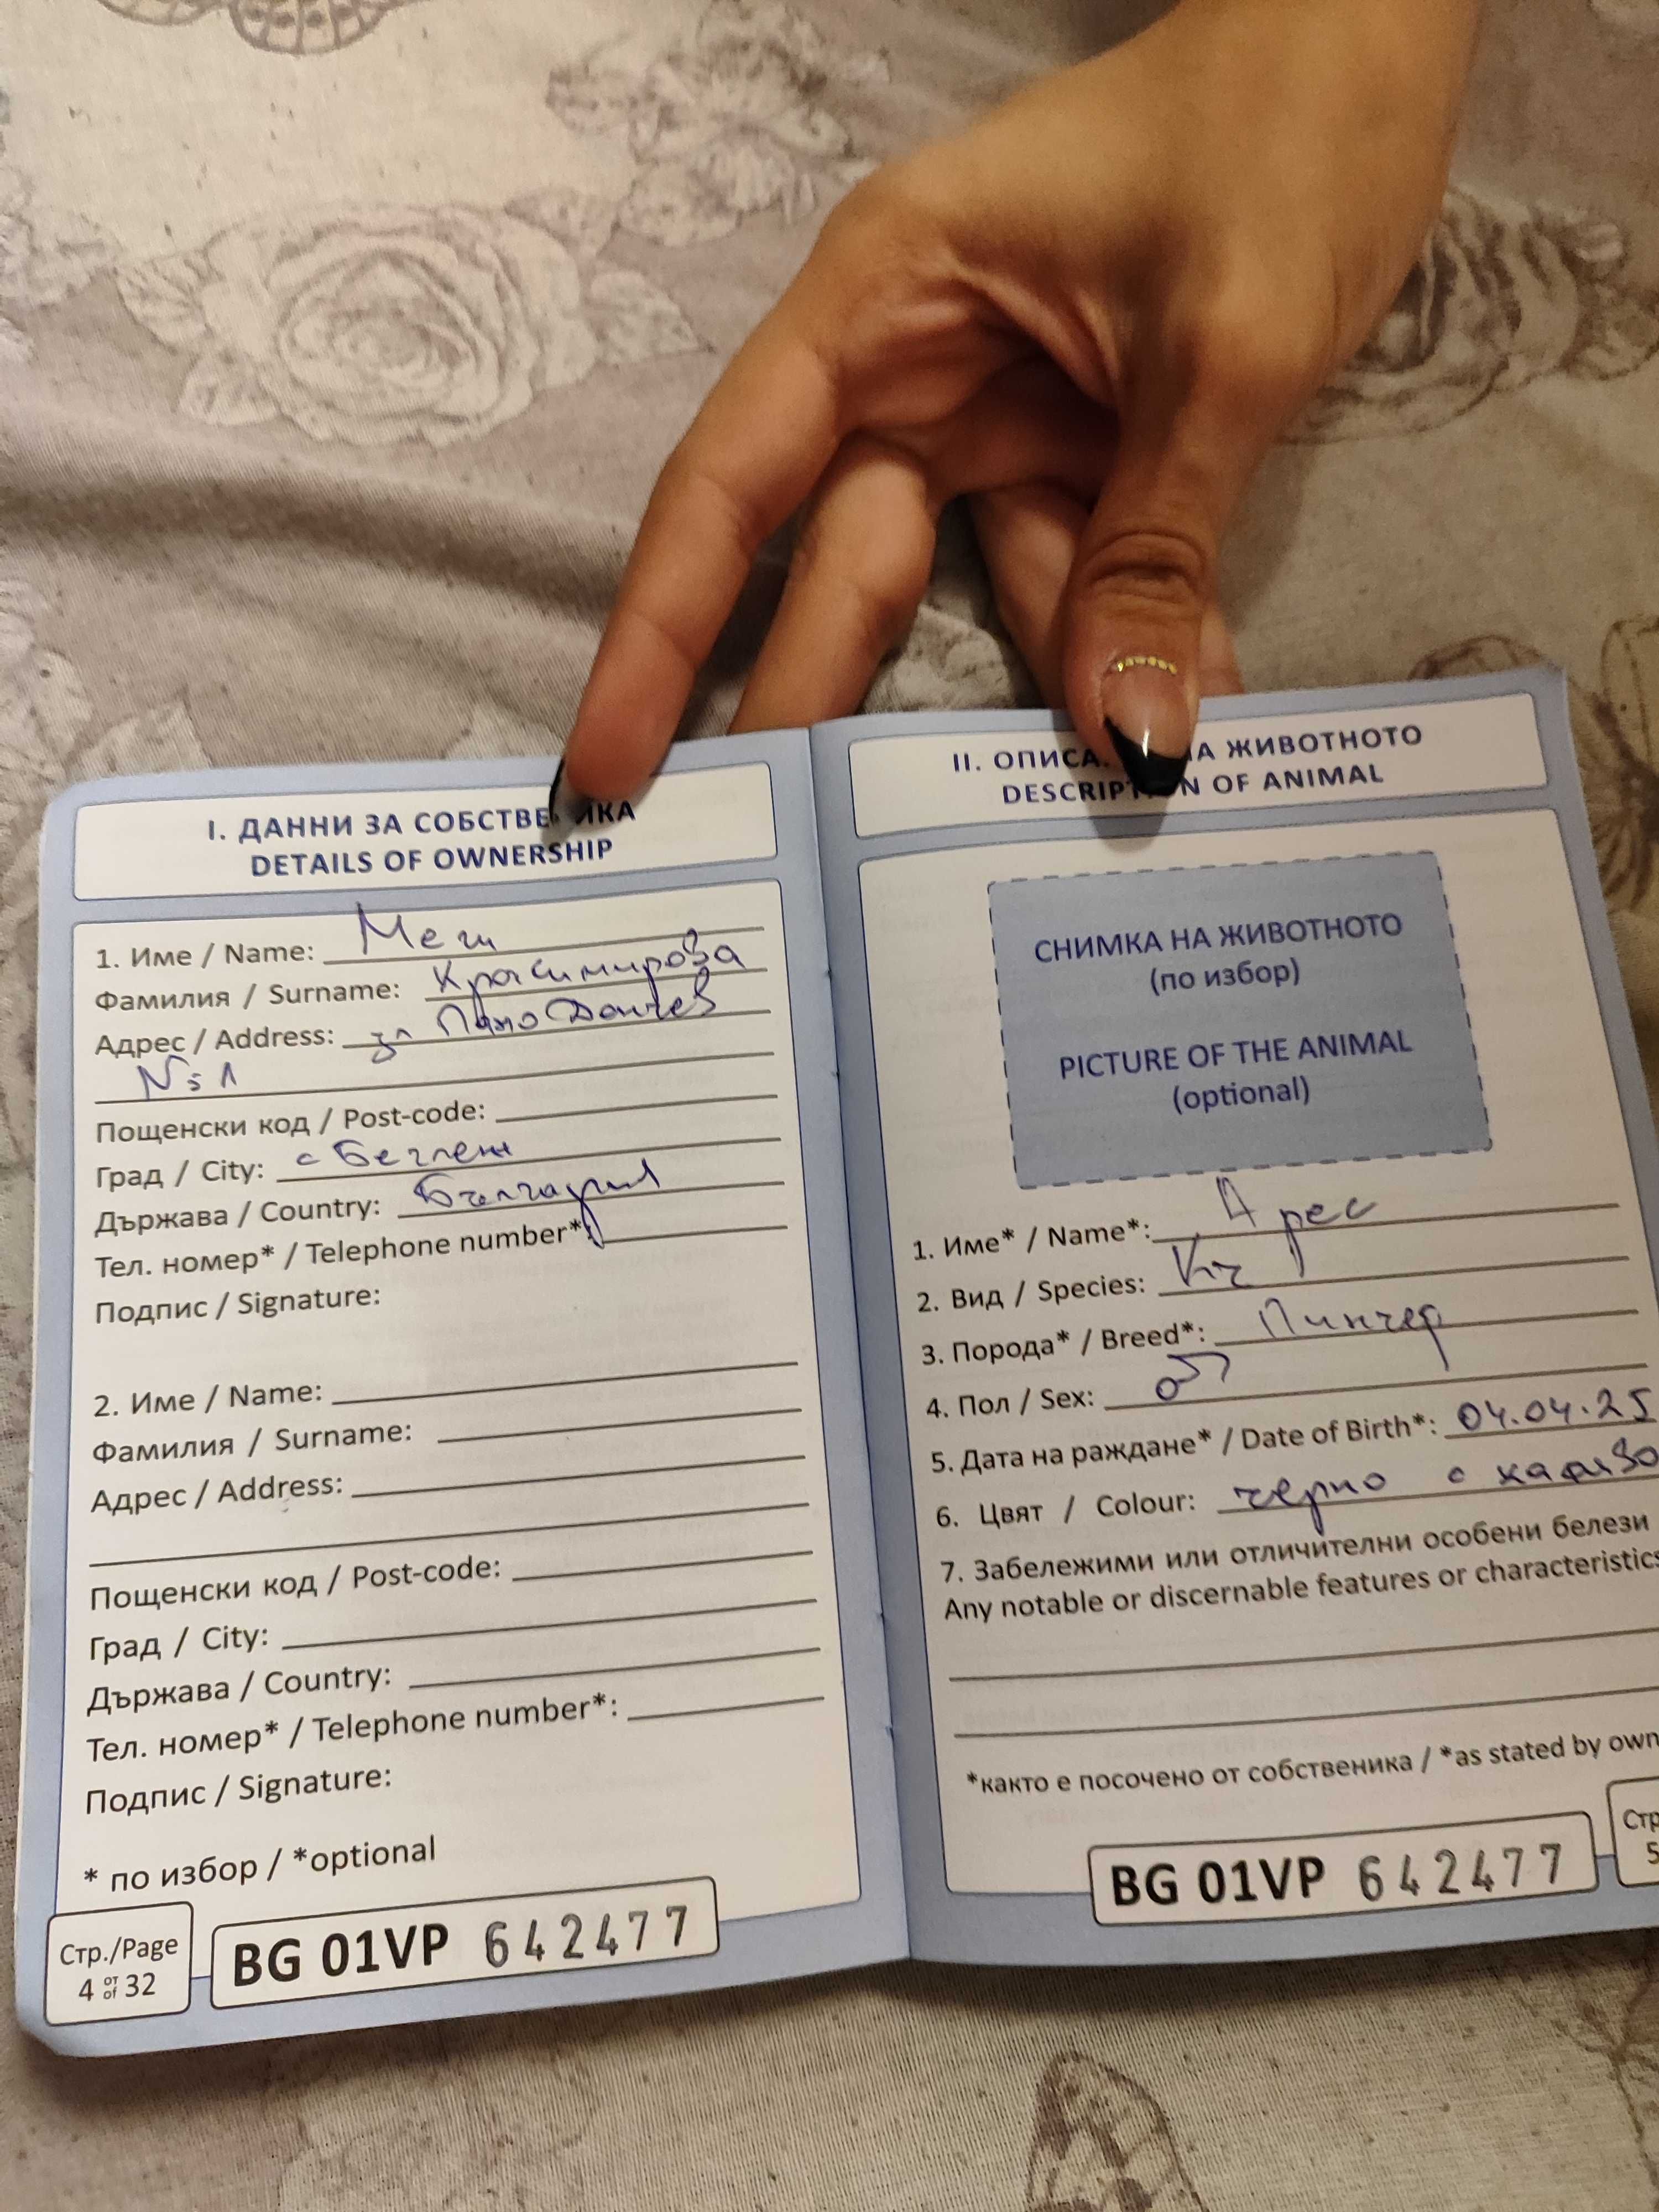 I. ДАННИ ЗА СОБСТВЕ ИКА
DETAILS OF OWNERSHIP
1. Име / Name: Мегй
Фамилия / Surname: Красимирова
Адрес / Address: ул Пано Дончев
№ 1
Пощенски код / Post-code:
Град / City: с Беглеж
Държава / Country: България
Тел. номер* / Telephone number*:
Подпис / Signature:
2. Име / Name:
Фамилия / Surname:
Адрес / Address:
Пощенски код / Post-code:
Град / City:
Държава / Country:
Тел. номер* / Telephone number*:
Подпис / Signature:
* по избор / *optional
Стр./Page
4 от of 32
BG 01VP 642477
II. ОПИСА НА ЖИВОТНОТО
DESCRIPT N OF ANIMAL
СНИМКА НА ЖИВОТНОТО
(по избор)
PICTURE OF THE ANIMAL
(optional)
1. Име* / Name*: Арес
2. Вид / Species: Кч
3. Порода* / Breed*: Пинчер
4. Пол / Sex: ♂
5. Дата на раждане* / Date of Birth*: 04.04.25
6. Цвят / Colour: черно с кафяво
7. Забележими или отличителни особени белези
Any notable or discernable features or characteristics
*както е посочено от собственика / *as stated by own
BG 01VP 642477
Стр
5